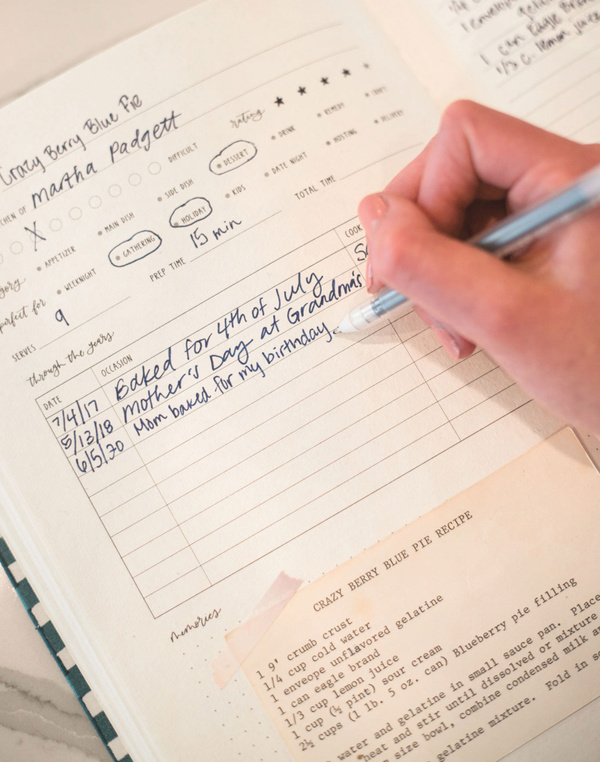 1 can Eagle Bran
1/3 c. lemon juice
Crazy Berry Blue Pie
rating
CHEN OF Martha Padgett
DIFFICULT
DRINK REMEDY
X
APPETIZER MAIN DISH SIDE DISH DESSERT
egory
perfect for WEEKNIGHT GATHERING HOLIDAY KIDS DATE NIGHT HOSTING DELIVERY
SERVES 9 PREP TIME 15 min TOTAL TIME
through the years
DATE OCCASION COOK
7/4/17 Baked for 4th of July
5/13/18 Mother's Day at Grandma's
6/5/20 Mom baked for my birthday
memories
CRAZY BERRY BLUE PIE RECIPE
1 9" crumb crust
1/4 cup cold water
1 enveope unflavored gelatine
1 can eagle brand
1/3 cup lemon juice
1 cup (½ pint) sour cream
2½ cups (1 lb. 5 oz. can) Blueberry pie filling
water and gelatine in small sauce pan. Place
heat and stir until dissolved or mixture
size bowl, combine condensed milk a
gelatine mixture. Fold in so